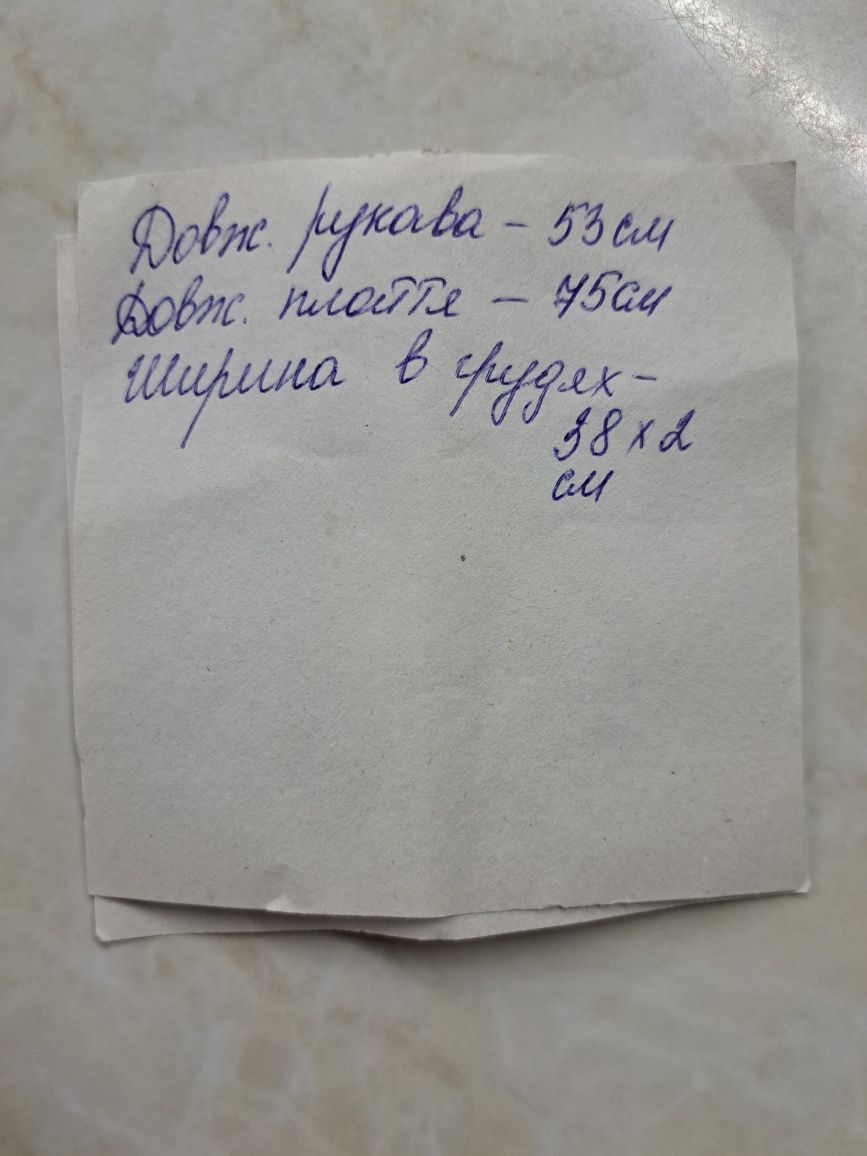 Довж. рукава – 53 см
Довж. плаття – 75 см
Ширина в грудях –
38 х 2
см